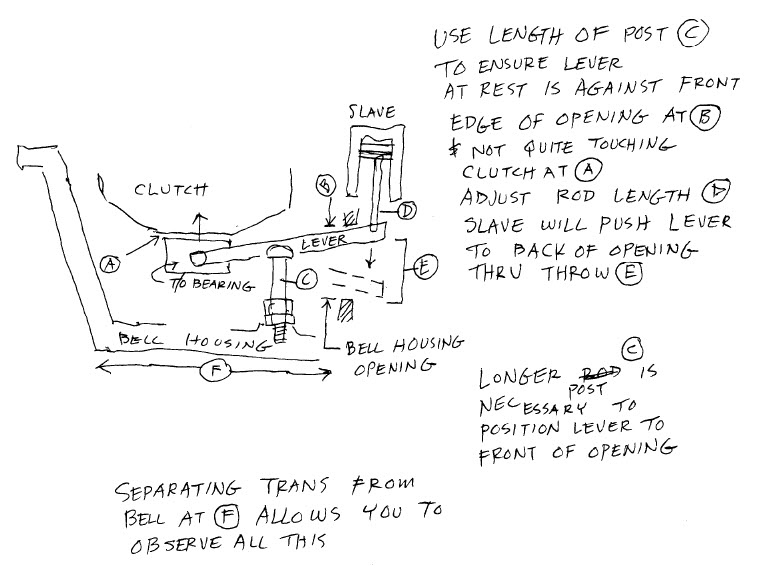 USE LENGTH OF POST C
TO ENSURE LEVER
AT REST IS AGAINST FRONT
EDGE OF OPENING AT B
& NOT QUITE TOUCHING
CLUTCH AT A
ADJUST ROD LENGTH D
SLAVE WILL PUSH LEVER
TO BACK OF OPENING
THRU THROW E
SLAVE
CLUTCH
B
D
LEVER
A
E
T/O BEARING
C
BELL HOUSING
BELL HOUSING
OPENING
F
C
LONGER POST IS
NECESSARY TO
POSITION LEVER TO
FRONT OF OPENING
SEPARATING TRANS FROM
BELL AT F ALLOWS YOU TO
OBSERVE ALL THIS